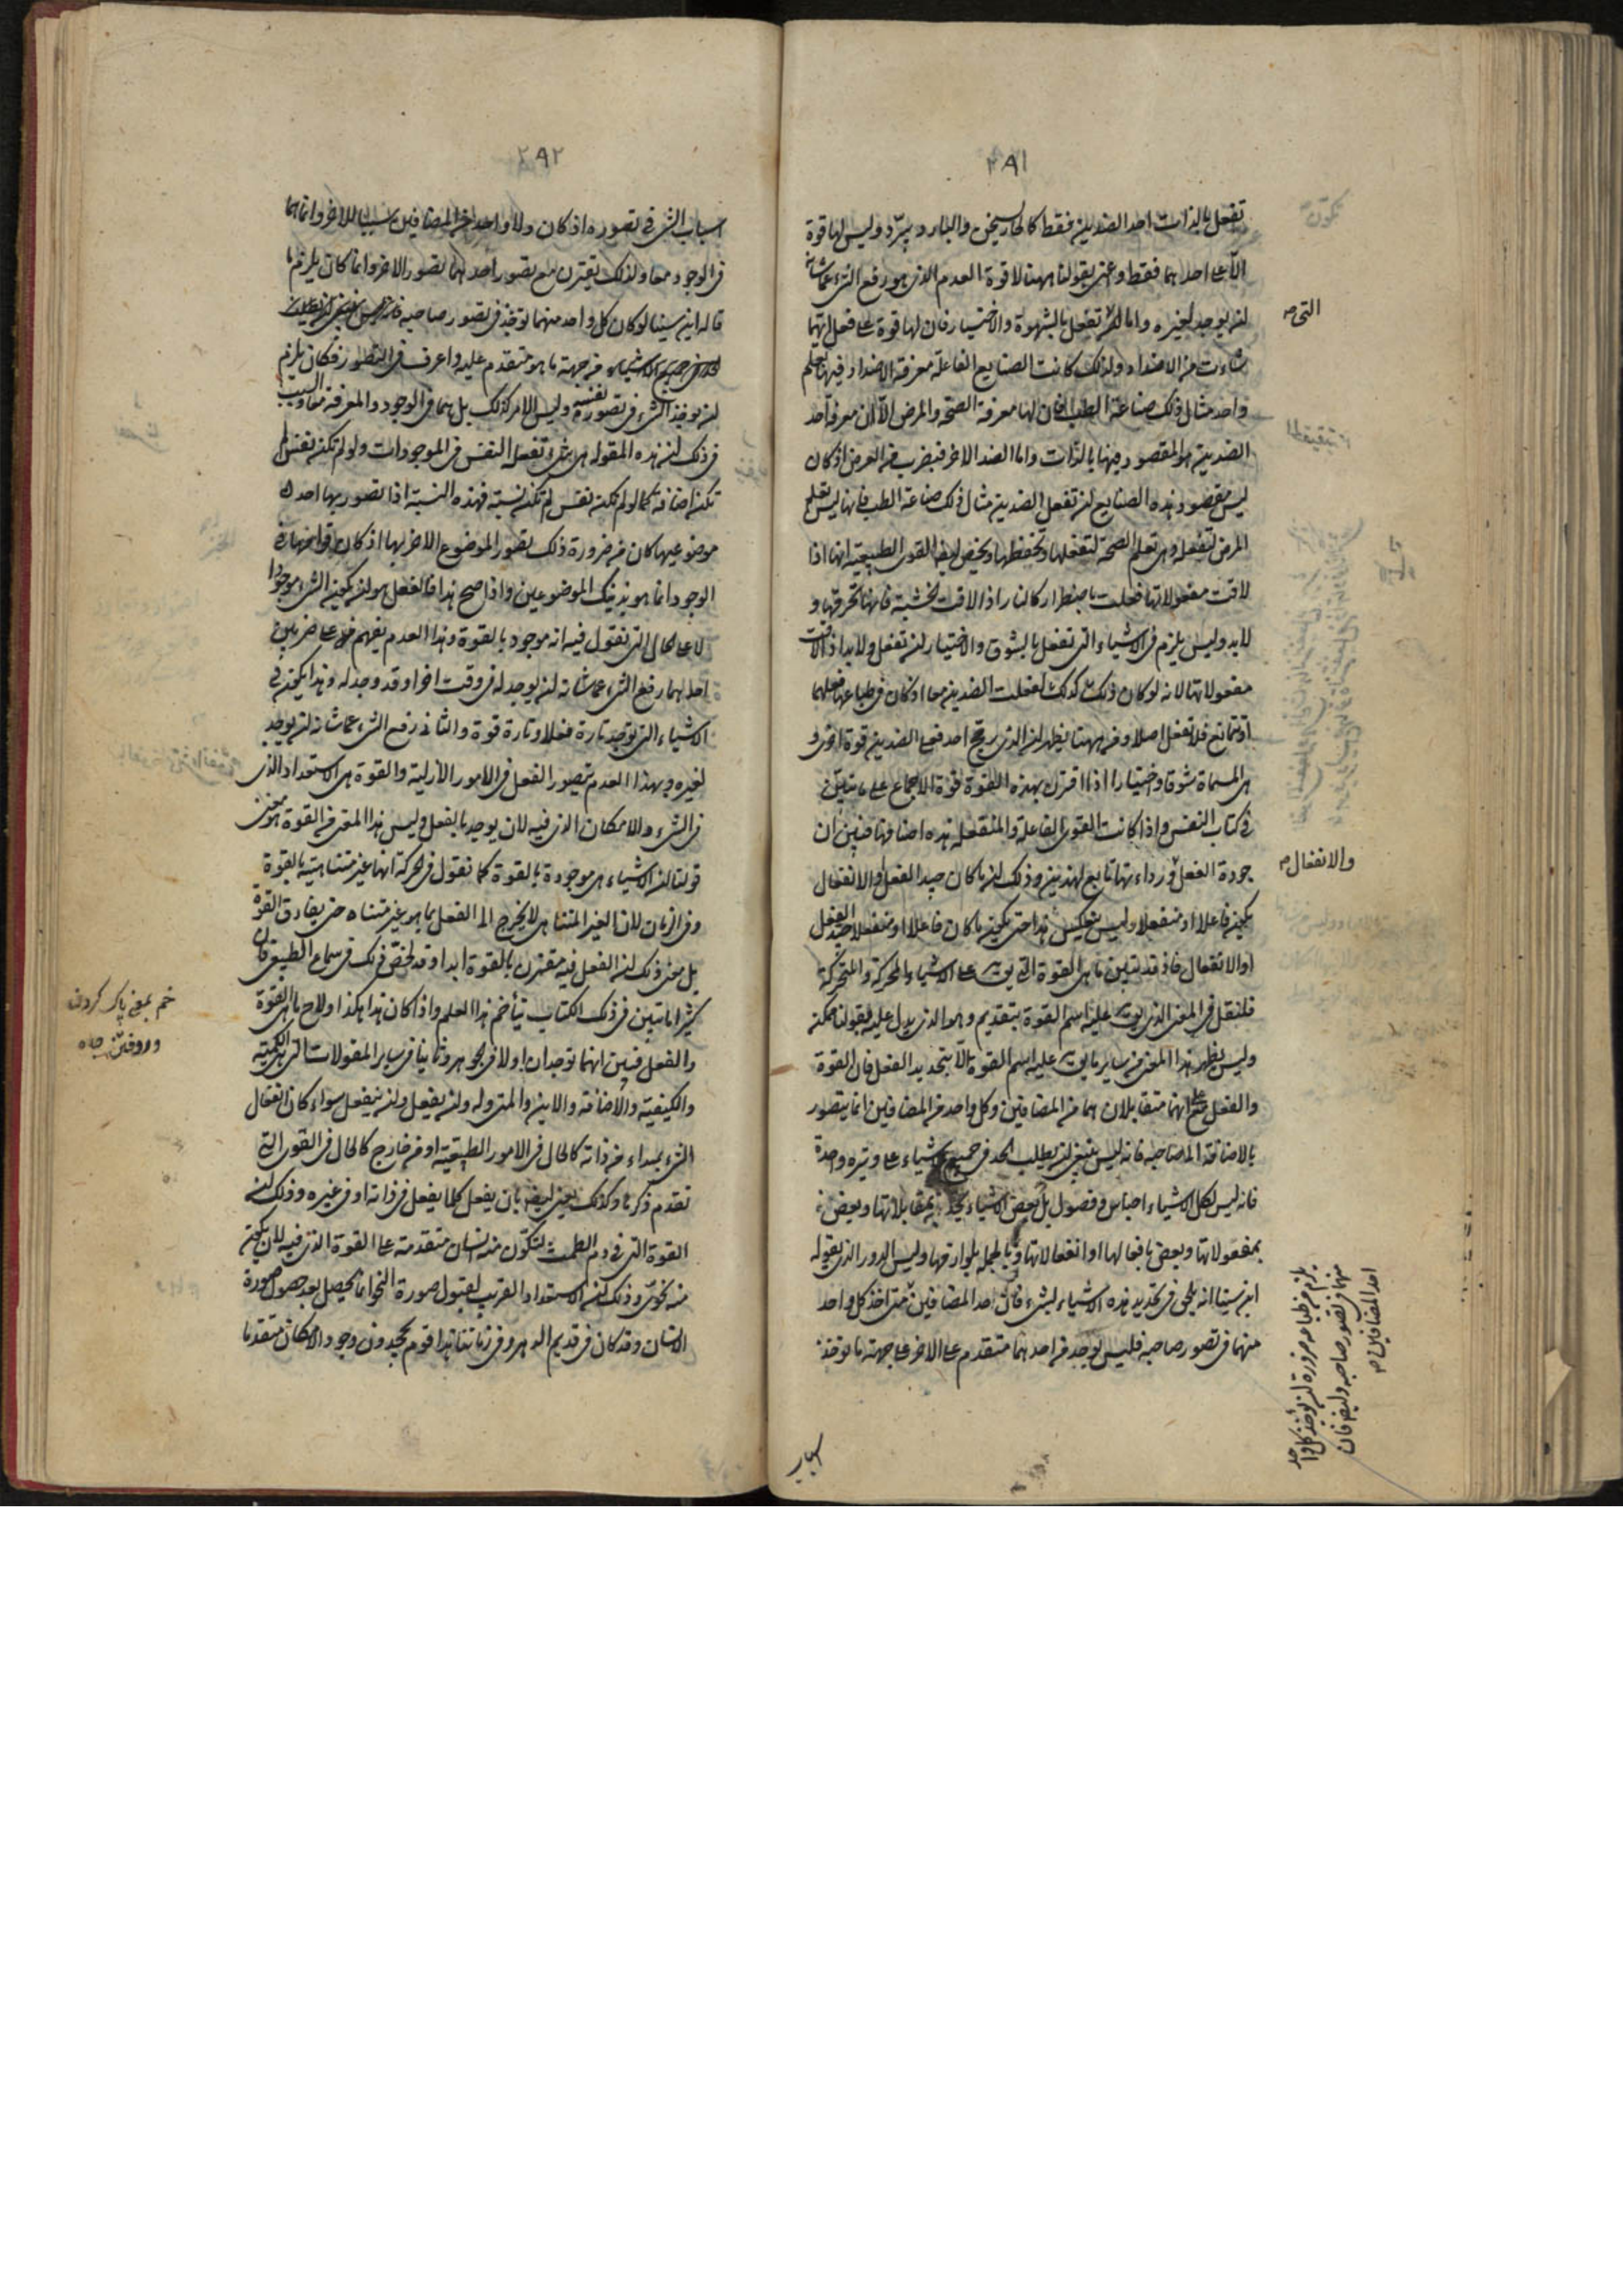 ٢٩١
تفعل بالذات احد الضدين فقط كالحار يسخن والبارد يبرّد وليس لها قوة
الّا على احدهما فقط واعنى بقولنا ههنا لا قوة العدم الذى هو رفع الشىء عمّا شانه
ان يوجد لغيره واما التى تفعل بالشهوة والاختيار فان لها قوة على فعل ايّهما
شاءت من الاضداد ولذلك كانت الصنايع الفاعلة معرفة الاضداد فيها لعلم
واحد مثال ذلك صناعة الطب فان لها معرفة الصحّة والمرض الّا ان معرفة احد
الضدين هو المقصود فيها بالذات واما الضد الاخر فبضرب من العرض اذ كان
ليس مقصود هذه الصنايع ان تفعل الضدين مثال ذلك صناعة الطب فانها ليس تعلم
المرض لتفعله وهى تعلم الصحة لتفعلها وتحفظها ويخص ايضا القوى الطبيعية انها اذا
لاقت مفعولاتها فعلت باضطرار كالنار اذا لاقت الخشبة فانها تحرقها و
لابد وليس يلزم فى الاشياء التى تفعل بالشوق والاختيار ان تفعل ولابد اذا لاقت
مفعولاتها لانه لو كان ذلك كذلك لفعلت الضدين معا اذ كان فى طباعها فعلهما
او تمانع فلا تفعل اصلا ومن ههنا يظهر ان الذى يرجح احد فعلى الضدين قوة اخرى
هى المسماة شوقا واختيارا اذا اقترن بهذه القوة قوة الاجماع على ما تبيّن
فى كتاب النفس واذا كانت القوى الفاعلة والمنفعلة هذه اصنافها فبيّن ان
جودة الفعل ورداءتها تابع لهذين وذلك ان ما كان جيد الفعل او الانفعال
يكون فاعلا او منفعلا وليس ينعكس هذا حتى يكون ما كان فاعلا او منفعلا جيد الفعل
او الانفعال فاذ قد تبين ما هى القوة التى يق على الاشياء المحركة والمتحركة
فلنقل فى المعنى الذى يق عليه اسم القوة بتقديم وهو الذى يدل عليه بقولنا ممكنة
وليس يظهر هذا المعنى من ساير ما يق عليه اسم القوة الّا بتحديد الفعل فان القوة
والفعل مع انهما متقابلان هما من المضافين وكل واحد من المضافين انما يتصور
بالاضافة الى صاحبه فانه ليس ينبغى ان يطلب الحد فى جميع الاشياء على وتيره واحدة
فانه ليس لكل الاشياء اجناس وفصول بل بعض الاشياء يحد بمقابلاتها وبعض
بمفعولاتها وبعض بافعالها او انفعالاتها وبالجملة بلوازمها وليس الدور الذى يقوله
ابن سينا انه يلحق فى تحديد هذه الاشياء بشىء فان احد المضافين متى اخذ كل واحد
منهما فى تصور صاحبه فليس يوجد من احدهما متقدم على الاخر على جهة ما توخذ
التى صه
والانفعال صه
يلزم من طباعه ضرورة ان يؤخذ كل واحد
منهما فى تصور صاحبه وليس فان
احد المضافين صه
٢٩٢
اسباب الشىء فى تصوره اذ كان ولا واحد من المضافين سببا للاخر وانما هما
فى الوجود معا ولذلك يقترن مع تصور احدهما تصور الاخر وانما كان يلزم ما
قاله ابن سينا لو كان كل واحد منهما توخذ فى تصور صاحبه
فى جميع الاشياء من جهة ما هو متقدم عليه واعرف فى التصور فكان يلزم
ان يوخذ الشىء فى تصور نفسه وليس الامر كذلك بل هما فى الوجود والمعرفة معا والسبب
فى ذلك ان هذه المقولة هى شىء تفعله النفس فى الموجودات ولو لم تكن نفس لم
تكن اضافة كما لو لم تكن نفس لم تكن نسبة فهذه النسبة اذا تصور بها احد
موضوعيها كان من ضرورة ذلك تصور الموضوع الاخر بها اذ كان قوامها فى
الوجود انما هو بذينك الموضوعين واذا صح هذا فالفعل هو ان يكون الشىء موجودا
لا على الحال التى نقول فيه انه موجود بالقوة وهذا العدم يفهم على ضربين
احدهما رفع الشىء عما شانه ان يوجد له فى وقت اخر او قد وجد له وهذا يكون فى
الاشياء التى توجد تارة فعلا وتارة قوة والثانى رفع الشىء عما شانه ان يوجد
لغيره وبهذا العدم يتصور الفعل فى الامور الازلية والقوة هى الاستعداد الذى
فى الشىء والامكان الذى فيه لان يوجد بالفعل وليس هذا المعنى من القوة هو معنى
قولنا ان الاشياء هى موجودة بالقوة كما نقول فى الحركة انها غير متناهية بالقوة
وفى الزمان لان الغير المتناهى لا يخرج الى الفعل بما هو غير متناه حتى يفارق القوة
بل معنى ذلك ان الفعل فيه مقترن بالقوة ابدا وقد لخّص ذلك فى سماع الطبيعى فان
كثيرا ما تبيّن فى ذلك الكتاب يتأخم هذا العلم واذا كان هذا هكذا ولاح ما هى القوة
والفعل فبيّن انهما توجدان اولا فى الجوهر وثانيا فى ساير المقولات التى هى الكمية
والكيفية والاضافة والاين والمتى وله وان يفعل وان ينفعل سواء كان انفعال
الشىء بمبداء من ذاته كالحال فى الامور الطبيعية او من خارج كالحال فى القوى التى
تقدم ذكرها وكذلك يعنى ايضا بان يفعل كلما يفعل فى ذاته او فى غيره وذلك ان
القوة التى فى دم الطمث لتكوّن منه انسان متقدمة على القوة الذى فيه لان يكون
منه نحوىّ وذلك ان الاستعداد القريب لقبول صورة النحو انما يحصل بعد حصول صورة
الانسان وقد كان فى قديم الدهر وفى زماننا هذا قوم يجحدون وجود الامكان متقدما
خم بمعنى پاك كردن
وروفتن چاه